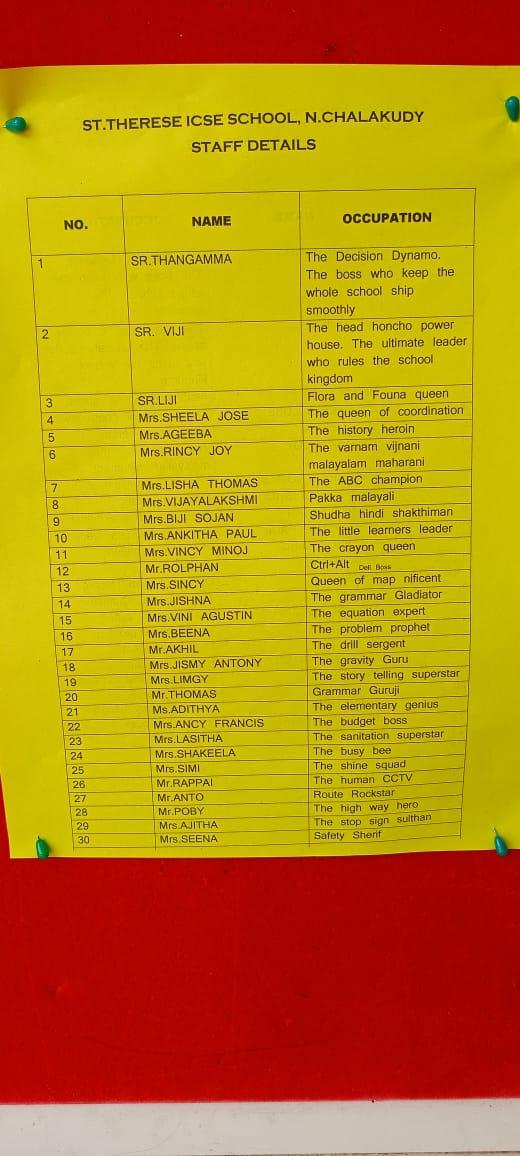 ST.THERESE ICSE SCHOOL, N.CHALAKUDY
STAFF DETAILS
NO. NAME OCCUPATION
1 SR.THANGAMMA The Decision Dynamo.
The boss who keep the
whole school ship
smoothly
2 SR. VIJI The head honcho power
house. The ultimate leader
who rules the school
kingdom
3 SR.LIJI Flora and Founa queen
4 Mrs.SHEELA JOSE The queen of coordination
5 Mrs.AGEEBA The history heroin
6 Mrs.RINCY JOY The varnam vijnani
malayalam maharani
7 Mrs.LISHA THOMAS The ABC champion
8 Mrs.VIJAYALAKSHMI Pakka malayali
9 Mrs.BIJI SOJAN Shudha hindi shakthiman
10 Mrs.ANKITHA PAUL The little learners leader
11 Mrs.VINCY MINOJ The crayon queen
12 Mr.ROLPHAN Ctrl+Alt Dell Boss
13 Mrs.SINCY Queen of map nificent
14 Mrs.JISHNA The grammar Gladiator
15 Mrs.VINI AGUSTIN The equation expert
16 Mrs.BEENA The problem prophet
17 Mr.AKHIL The drill sergent
18 Mrs.JISMY ANTONY The gravity Guru
19 Mrs.LIMGY The story telling superstar
20 Mr.THOMAS Grammar Guruji
21 Ms.ADITHYA The elementary genius
22 Mrs.ANCY FRANCIS The budget boss
23 Mrs.LASITHA The sanitation superstar
24 Mrs.SHAKEELA The busy bee
25 Mrs.SIMI The shine squad
26 Mr.RAPPAI The human CCTV
27 Mr.ANTO Route Rockstar
28 Mr.POBY The high way hero
29 Mrs.AJITHA The stop sign sulthan
30 Mrs.SEENA Safety Sherif